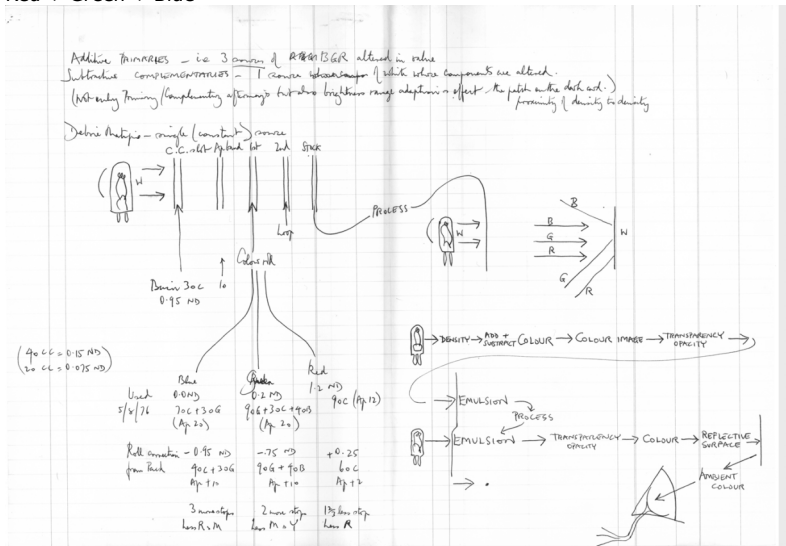 Red + Green + Blue
Additive PRIMARIES – i.e. 3 sources of BGR altered in value
Subtractive COMPLEMENTARIES – 1 source of white whose components are altered.
(Not only Primary/Complementary afterimage but also brightness range adaption effect – the patch on the dark card.)
proximity of density to density
Debrie Matipo – single (constant) source
C.C. slot Ap. band 1st 2nd Stock
W
PROCESS
Loop
W
B
B
G
R
G
R
W
Colour roll
Basic 30C
0.95 ND
10
(40 CC = 0.15 ND)
(20 CC = 0.075 ND)
Used
5/8/76
Blue
0.0ND
70C+30G
(Ap. 20)
0.2 ND
90G+30C+40B
(Ap. 20)
Red
1.2 ND
90C (Ap 12)
Roll correction
from Pack
– 0.95 ND
40C+30G
Ap + 10
-.75 ND
90G+40B
Ap + 10
+0.25
60C
Ap + 2
3 more stops
Less R = M
2 more stops
Less M = Y
1⅔ less stop
Less R
→ DENSITY → ADD + SUBTRACT COLOUR → COLOUR IMAGE → TRANSPARENCY OPACITY →
→ EMULSION
PROCESS
→ EMULSION → TRANSPARENCY OPACITY → COLOUR → REFLECTIVE SURFACE →
AMBIENT COLOUR